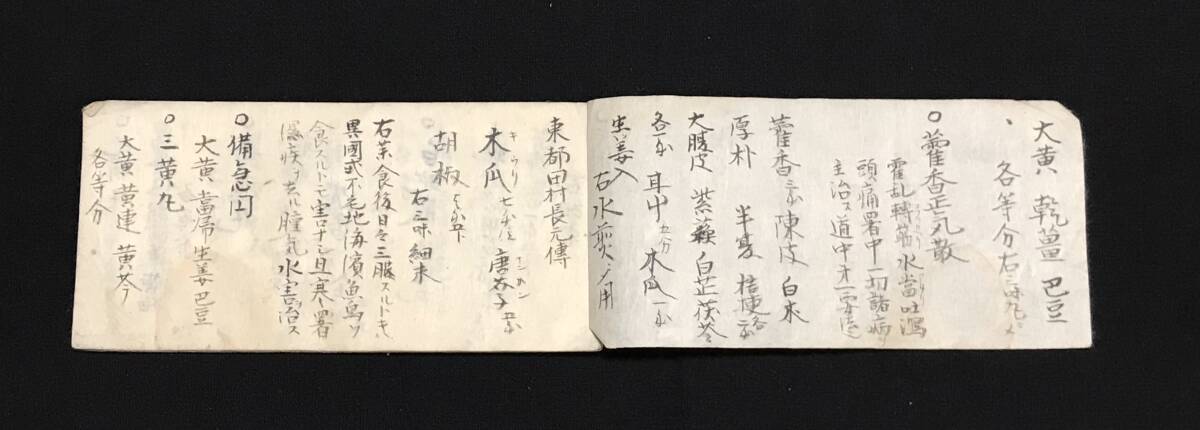 大黄 乾薑 巴豆
各等分右三味丸メ
○藿香正気散
霍乱轉筋水當吐瀉
頭痛暑中一切諸病
主治ス道中才一
藿香 陳皮 白朮
厚朴 半夏 桔梗各
大腹皮 紫蘓 白芷 茯苓
各一 五分 木瓜一
生姜入 右水煎シ用
東都田村長元傳
木瓜七
キウリ
胡椒
右三味細末
右薬食後日々三服スルトキハ
異國或不毛地海濱魚鳥ヲ
食スルトモ害ナシ且寒暑
腫氣水害ヲ治ス
○備急円
大黄 當帰 生姜 巴豆
○三黄丸
大黄 黄連 黄芩
各等分